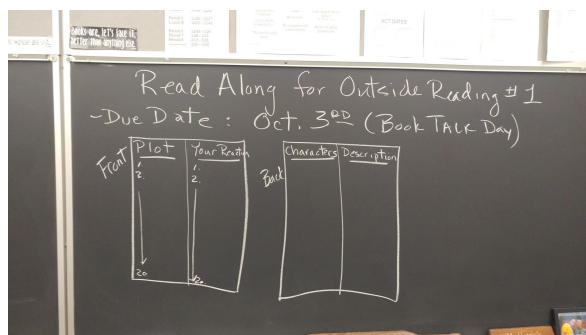 Books are, let's face it,
better than anything else.
ACT DATES
Read Along for Outside Reading #1
-Due Date: Oct. 3RD (Book TALK Day)
Front
Plot
Your Reaction
1.
1.
2.
2.
20
20
Back
Characters
Description